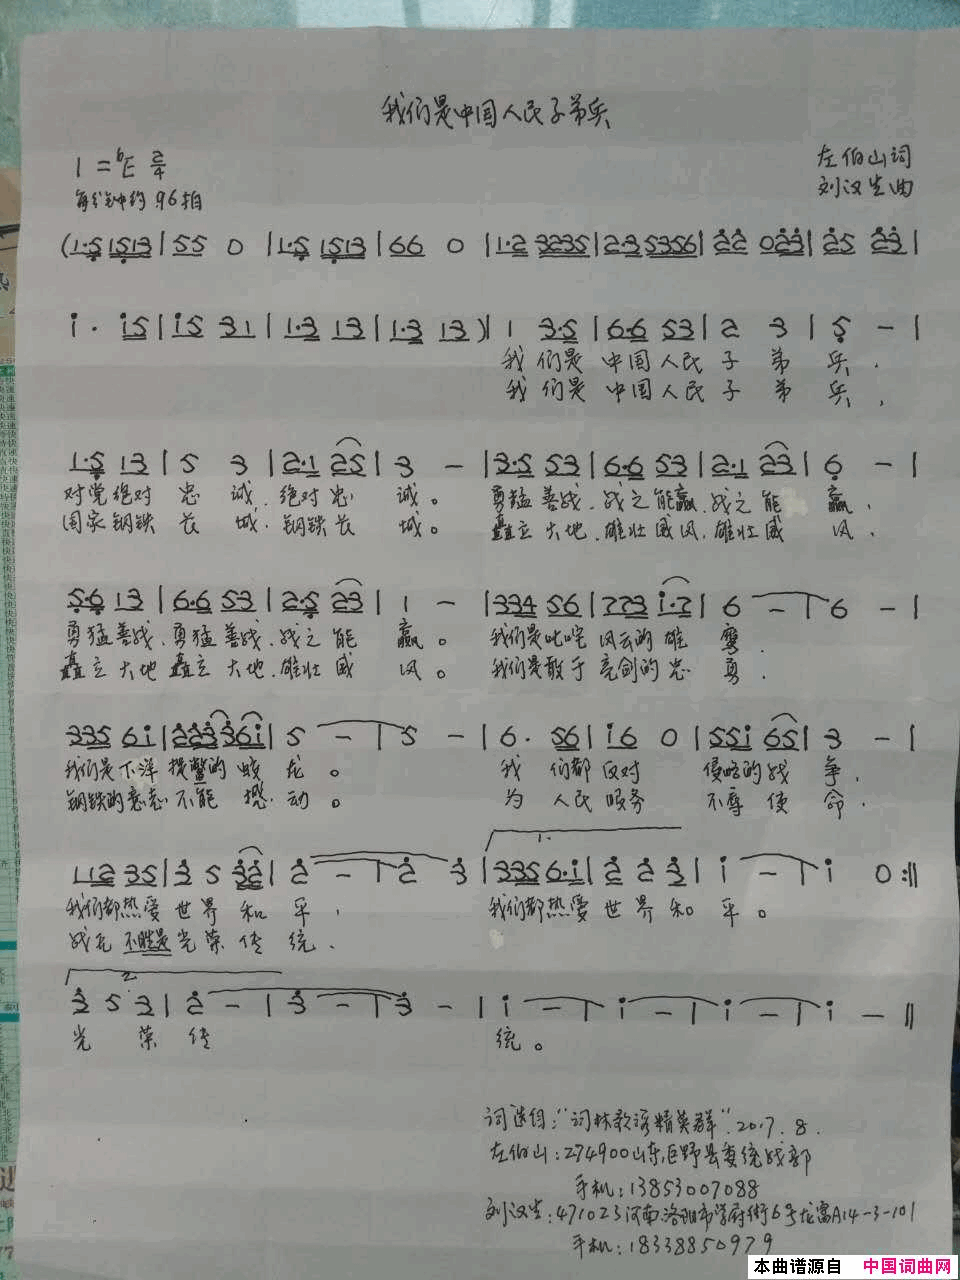 我们是中国人民子弟兵
1=♭E 2/4
左伯山词
每分钟约96拍
刘汉生曲
(1·5 1513 | 55 0 | 1·5 1513 | 66 0 | 1·2 3235 | 2·3 5356 | 22 023 | 25 23 |
i· i5 | i5 31 | 1·3 13 | 1·3 13 )| 1 3·5 | 6·6 53 | 2 3 | 5 - |
我 们是 中国人民 子 弟 兵.
我 们是 中国人民 子 弟 兵,
1·5 13 | 5 3 | 2·1 25 | 3 - | 3·5 53 | 6·6 53 | 2·1 23 | 6 - |
对党绝对 忠 诚.绝对忠 诚。 勇猛善战.战之能赢.战之能 赢,
国家钢铁 长 城.钢铁长 城。 矗立大地.雄壮威风.雄壮威 风,
5·6 13 | 6·6 53 | 2·5 23 | 1 - | 334 56 | 7723 i·7 | 6 - | 6 - |
勇猛善战.勇猛善战.战之能 赢。 我们是叱咤风云的雄 鹰.
矗立大地 矗立大地.雄壮威 风。 我们是敢于亮剑的忠 勇.
335 6i | 2233 36i | 5 - | 5 - | 6· 56 | i6 0 | 55i 65 | 3 - |
我们是下洋捉鳖的蛟 龙。 我 们都反对 侵略的战 争,
钢铁的意志不能撼 动。 为 人民服务 不辱使 命.
1.
112 35 | 3 5 32 | 2 - | 2 3 | 335 6·i | 2 2 3 | i - | i 0 :||
我们都热爱世界和 平, 我们都热爱世界和 平。
战无不胜是光荣传 统.
2.
3 5 3 | 2 - | 3 - | 3 - | i - | i - | i - | i - ||
光 荣 传 统。
词选自:"词林歌海精英群".2017.8.
左伯山:274900山东巨野县委统战部
手机:13853007088
刘汉生:471023河南洛阳市学府街6号龙富A14-3-101
手机:18338850979
本曲谱源自 中国词曲网